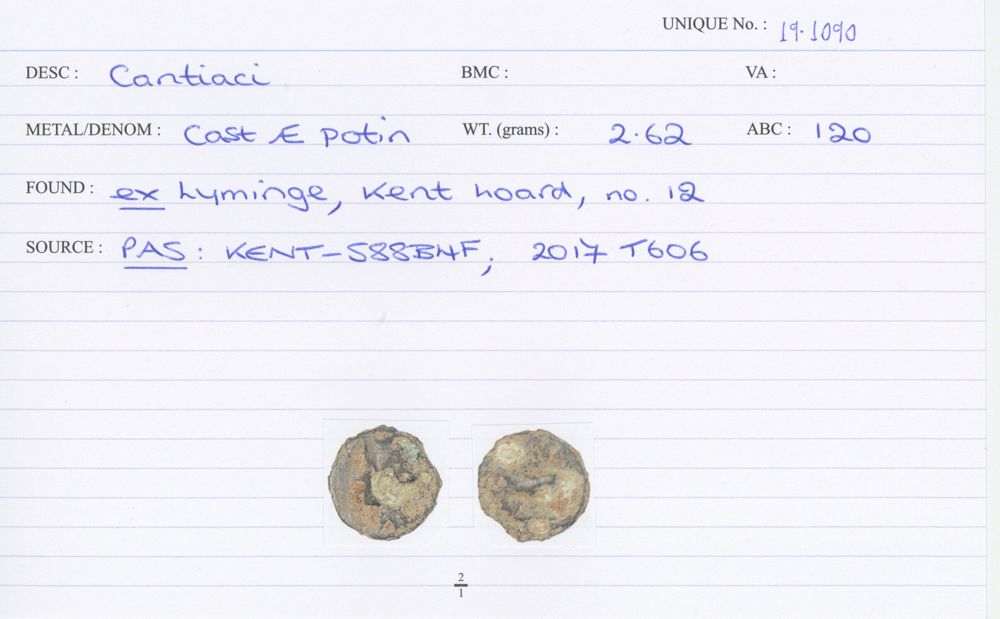 UNIQUE No. : 19.1090
DESC : Cantiaci BMC : VA :
METAL/DENOM : Cast Æ potin WT. (grams) : 2.62 ABC : 120
FOUND : ex Lyminge, Kent hoard, no. 12
SOURCE : PAS : KENT-588B4F; 2017 T606
2
1